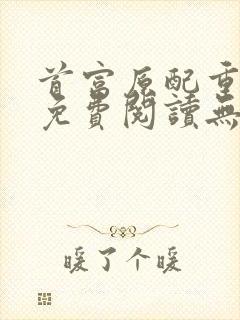 首富原配重
免費閱讀無
暖了个暖